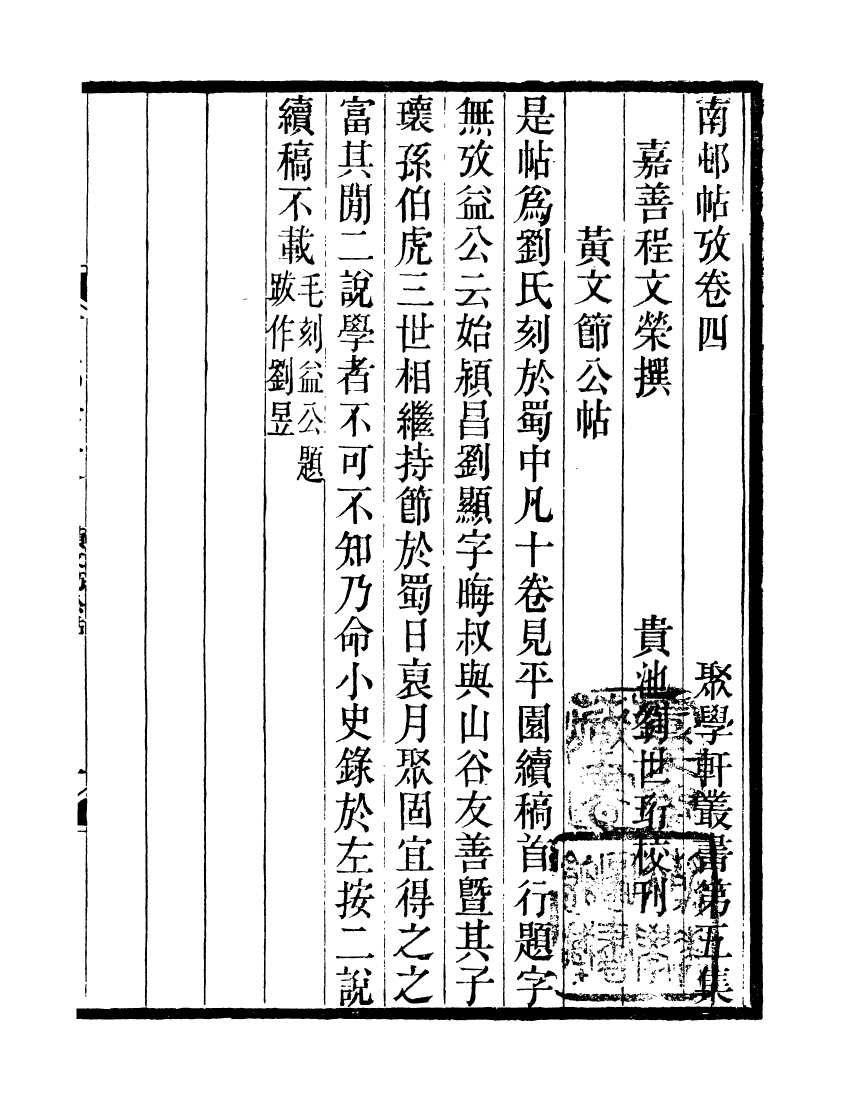 南邨帖攷卷四　聚學軒叢書第五集
嘉善程文榮撰　貴池劉世珩校刊
黃文節公帖
是帖爲劉氏刻於蜀中凡十卷見平園續稿首行題字
無攷益公云始潁昌劉顯字晦叔與山谷友善曁其子
瓌孫伯虎三世相繼持節於蜀日裒月聚固宜得之之
富其閒二說學者不可不知乃命小史錄於左按二說
續稿不載毛刻益公題
跋作劉昱